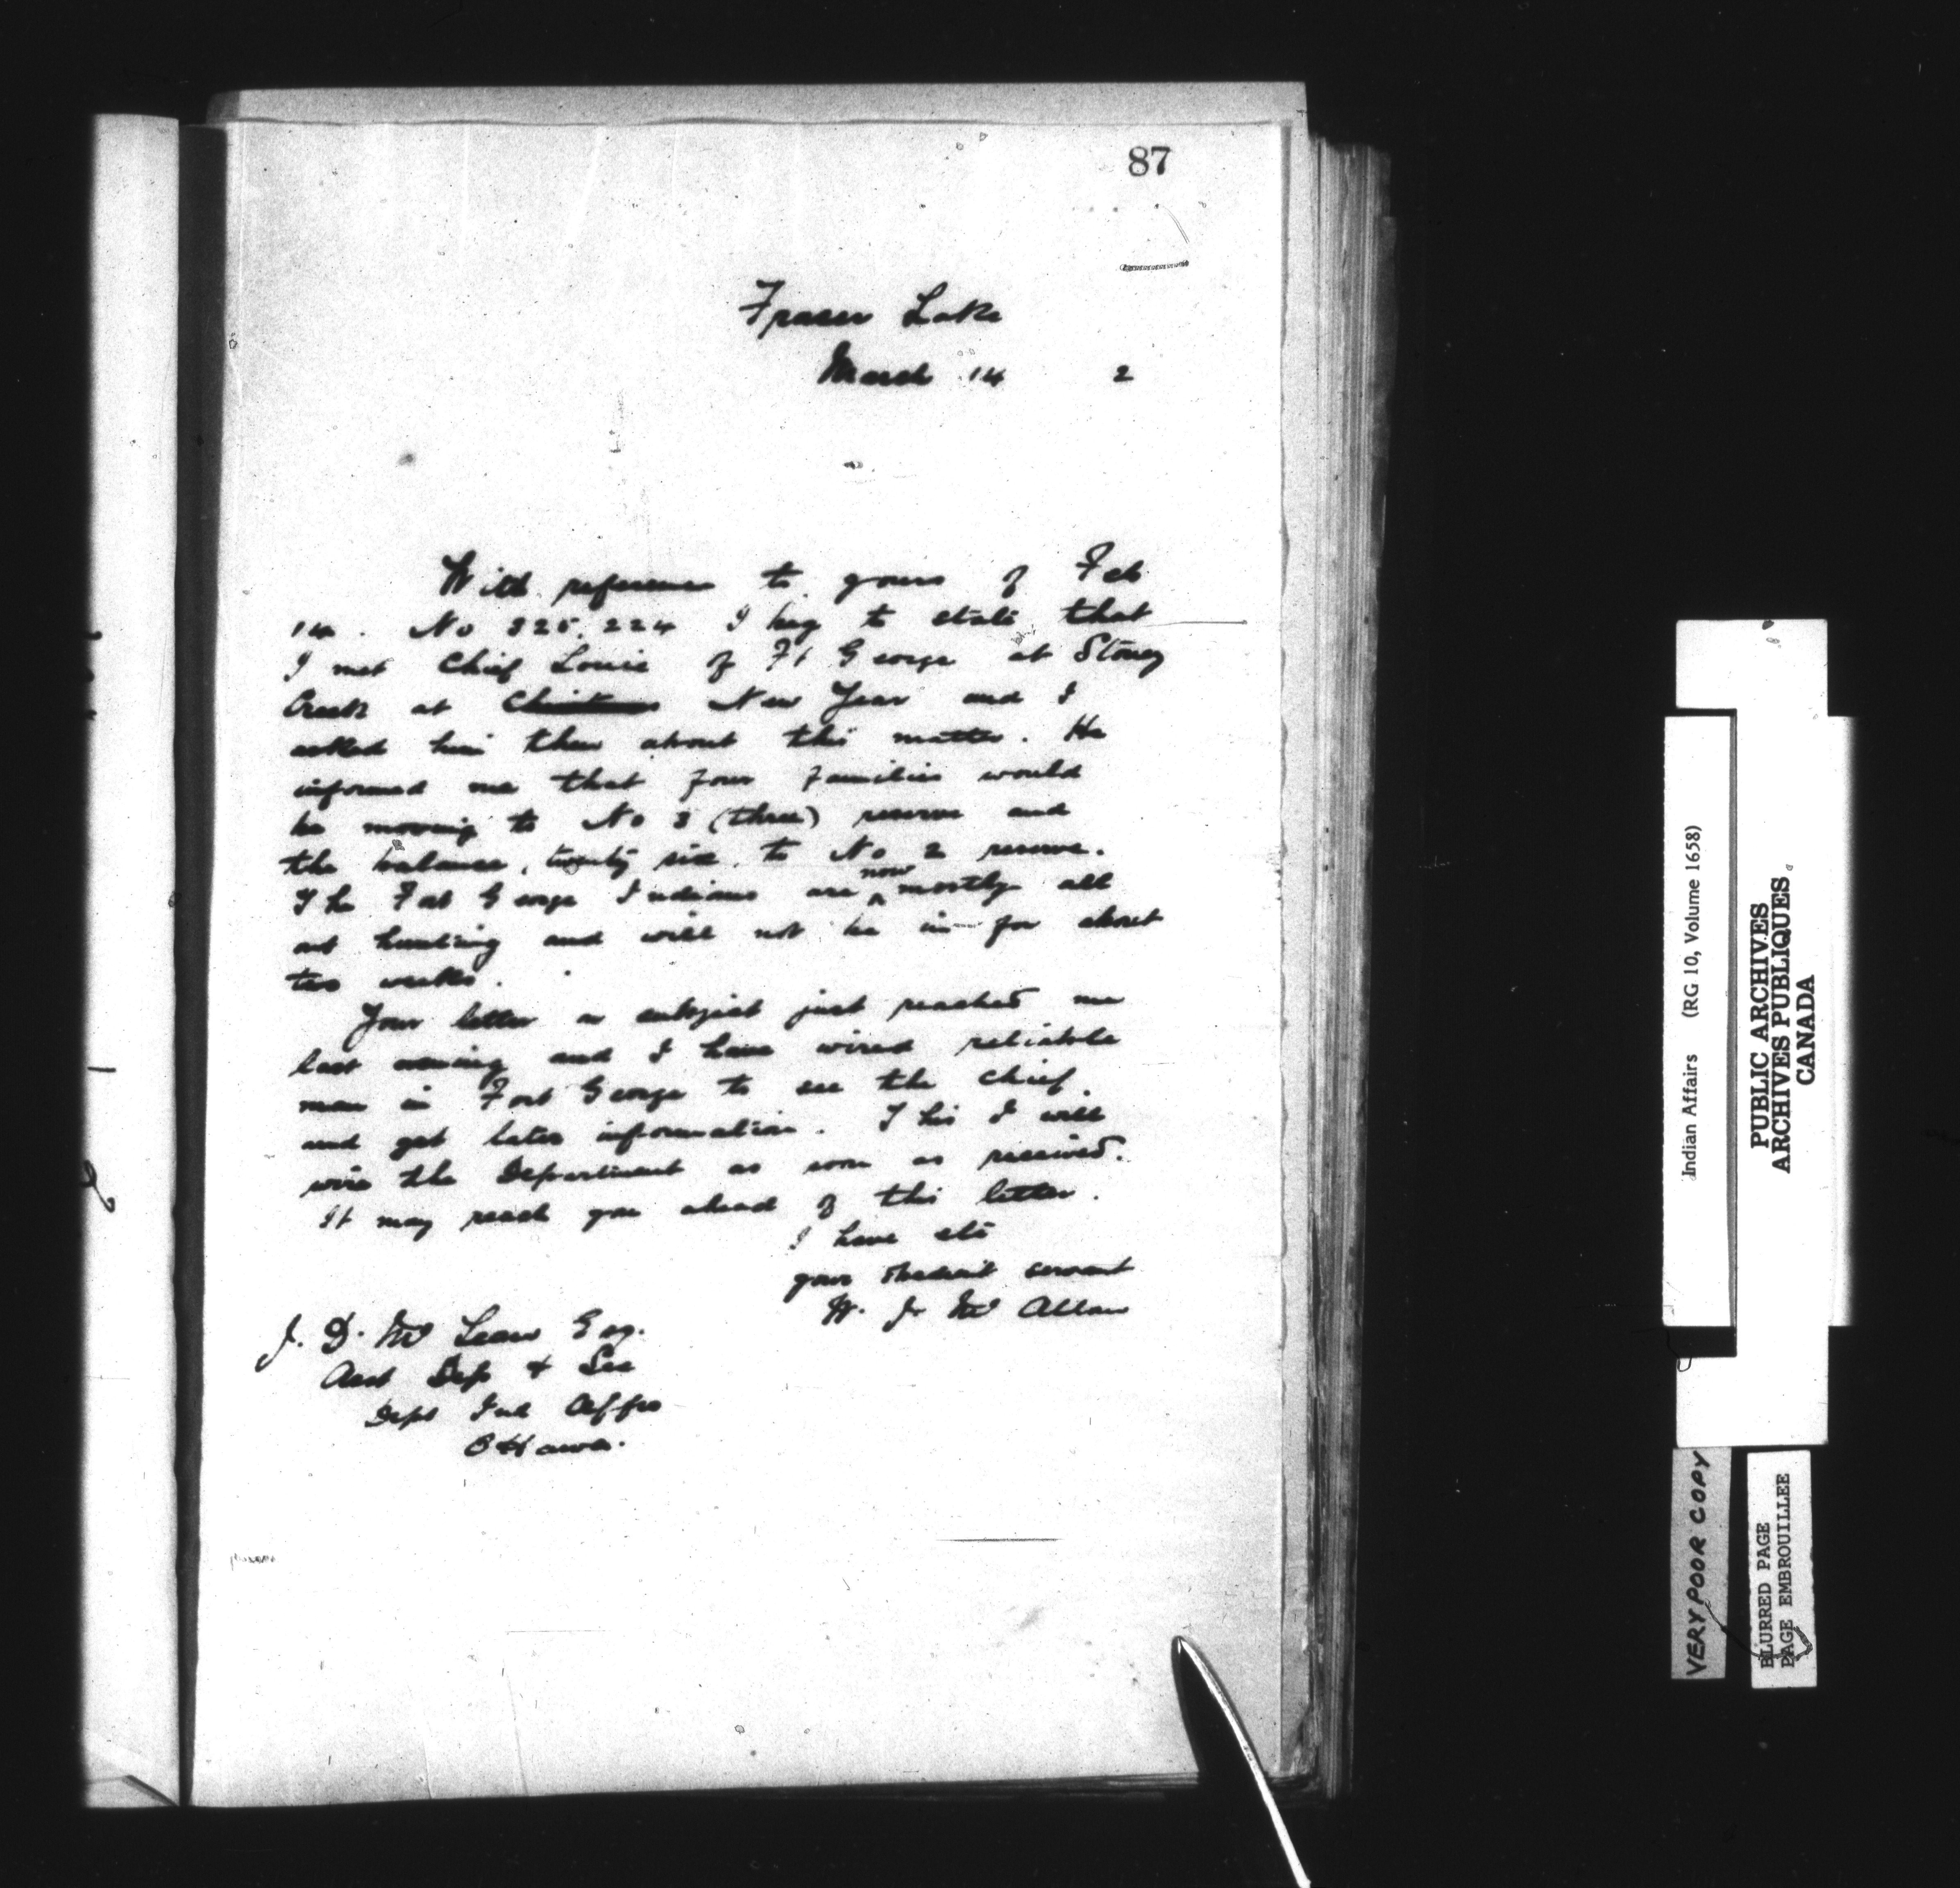 87
Fraser Lake
March 14 2
With reference to yours of Feb
14. No 325.224 I beg to state that
I met Chief Louie of Ft George at Stoney
Creek at Christmas New Year and I
asked him then about this matter. He
informed me that four families would
be moving to No 3 (three) reserve and
the balance, twenty six, to No 2 reserve.
now
The Fort George Indians are mostly all
out hunting and will not be in for about
two weeks.
Your letter on subject just reached me
last evening and I have wired reliable
man in Fort George to see the chief
and get later information. This I will
wire the Department as soon as received.
It may reach you ahead of this letter.
I have etc
your obedient servant
W. J. Mc Allan
J. D. Mc Lean Esq.
Asst Dep & Sec
Dept Ind Affrs
Ottawa.
Indian Affairs (RG 10, Volume 1658)
PUBLIC ARCHIVES
ARCHIVES PUBLIQUES
CANADA
VERY POOR COPY
BLURRED PAGE
PAGE EMBROUILLEE